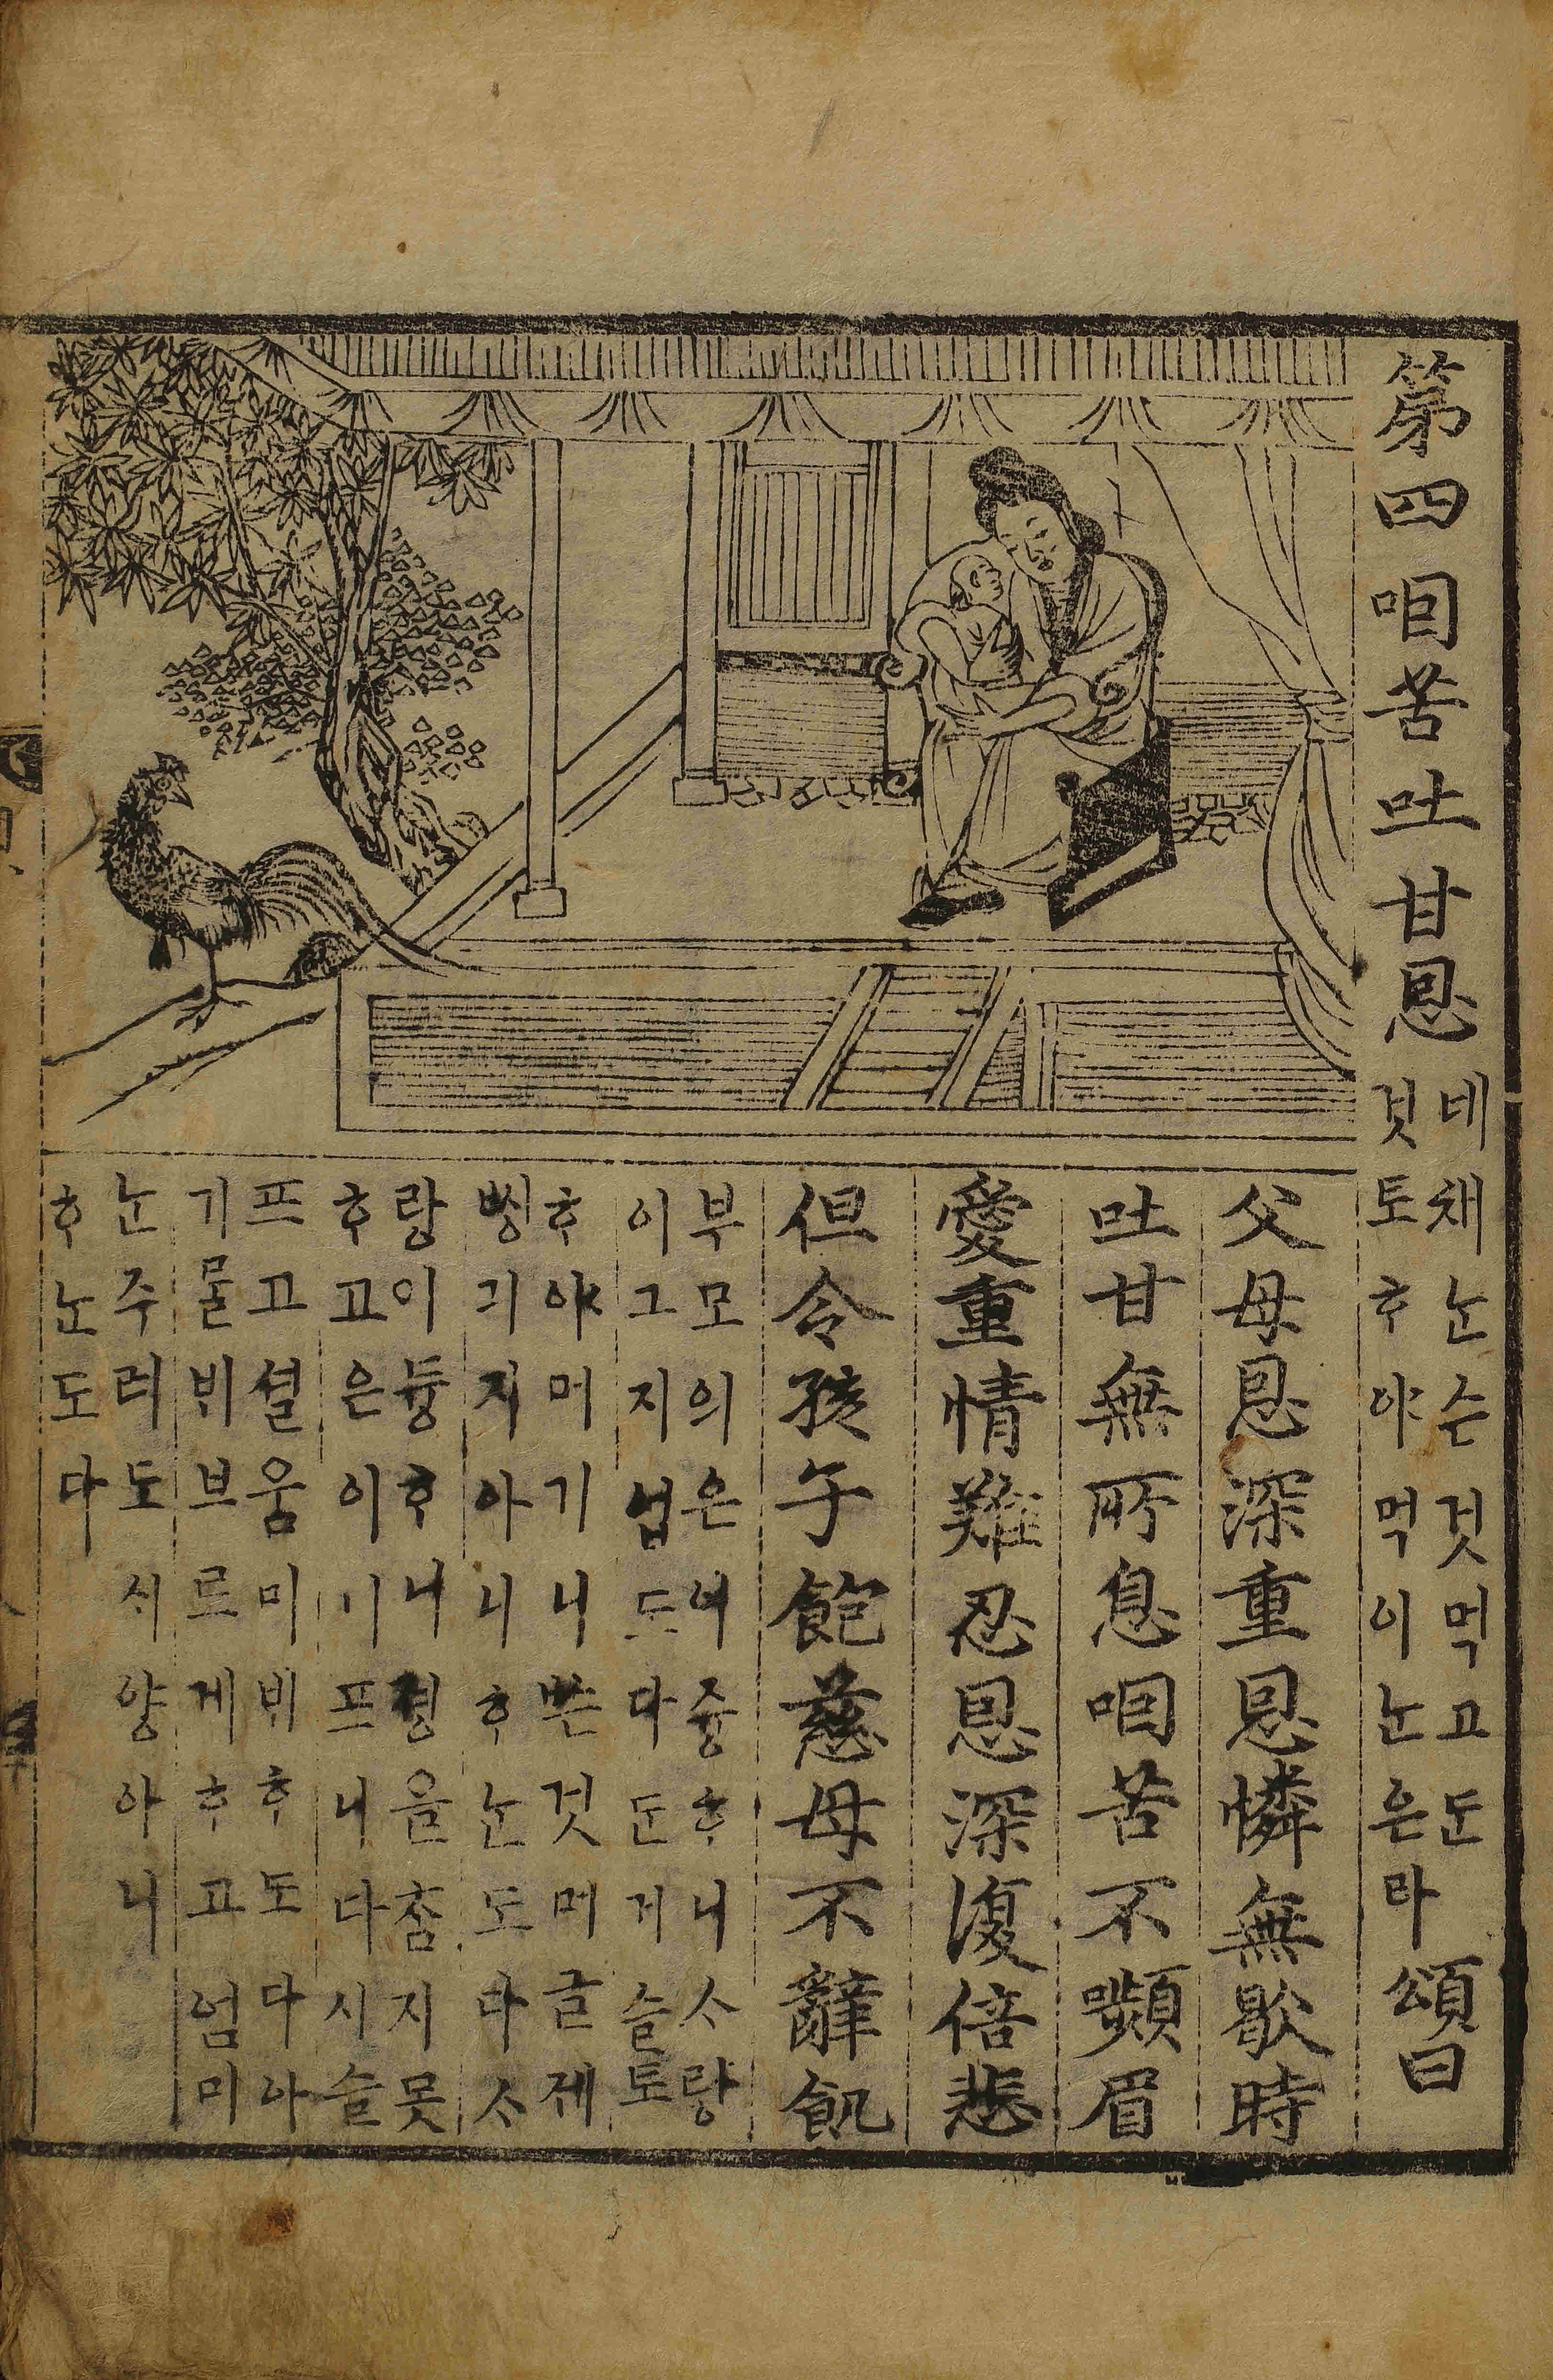 第四咽苦吐甘恩
네채ᄂᆞᆫ슨것먹고ᄃᆞᆫ
것토ᄒᆞ야먹이ᄂᆞᆫ은라
頌曰
父母恩深重恩憐無歇時
吐甘無所息咽苦不嚬眉
愛重情難忍恩深復倍悲
但令孩子飽慈母不辭飢
부모의은녀즁ᄒᆞ니ᄉᆞ랑
이그지업도다ᄃᆞᆫ거슬토
ᄒᆞ야머기니ᄡᅳᆫ것머글제
ᄡᅵᆼ긔지아니ᄒᆞᄂᆞᆫ도다ᄉᆞ
랑이듕ᄒᆞ니졍을ᄎᆞᆷ지못
ᄒᆞ고은이기프니다시슬
프고셜움미비ᄒᆞ도다다아
기ᄆᆞᆯ비브르게ᄒᆞ고엄미
ᄂᆞᆫ주려도ᄉᆡ양아니
ᄒᆞᄂᆞᆫ도다